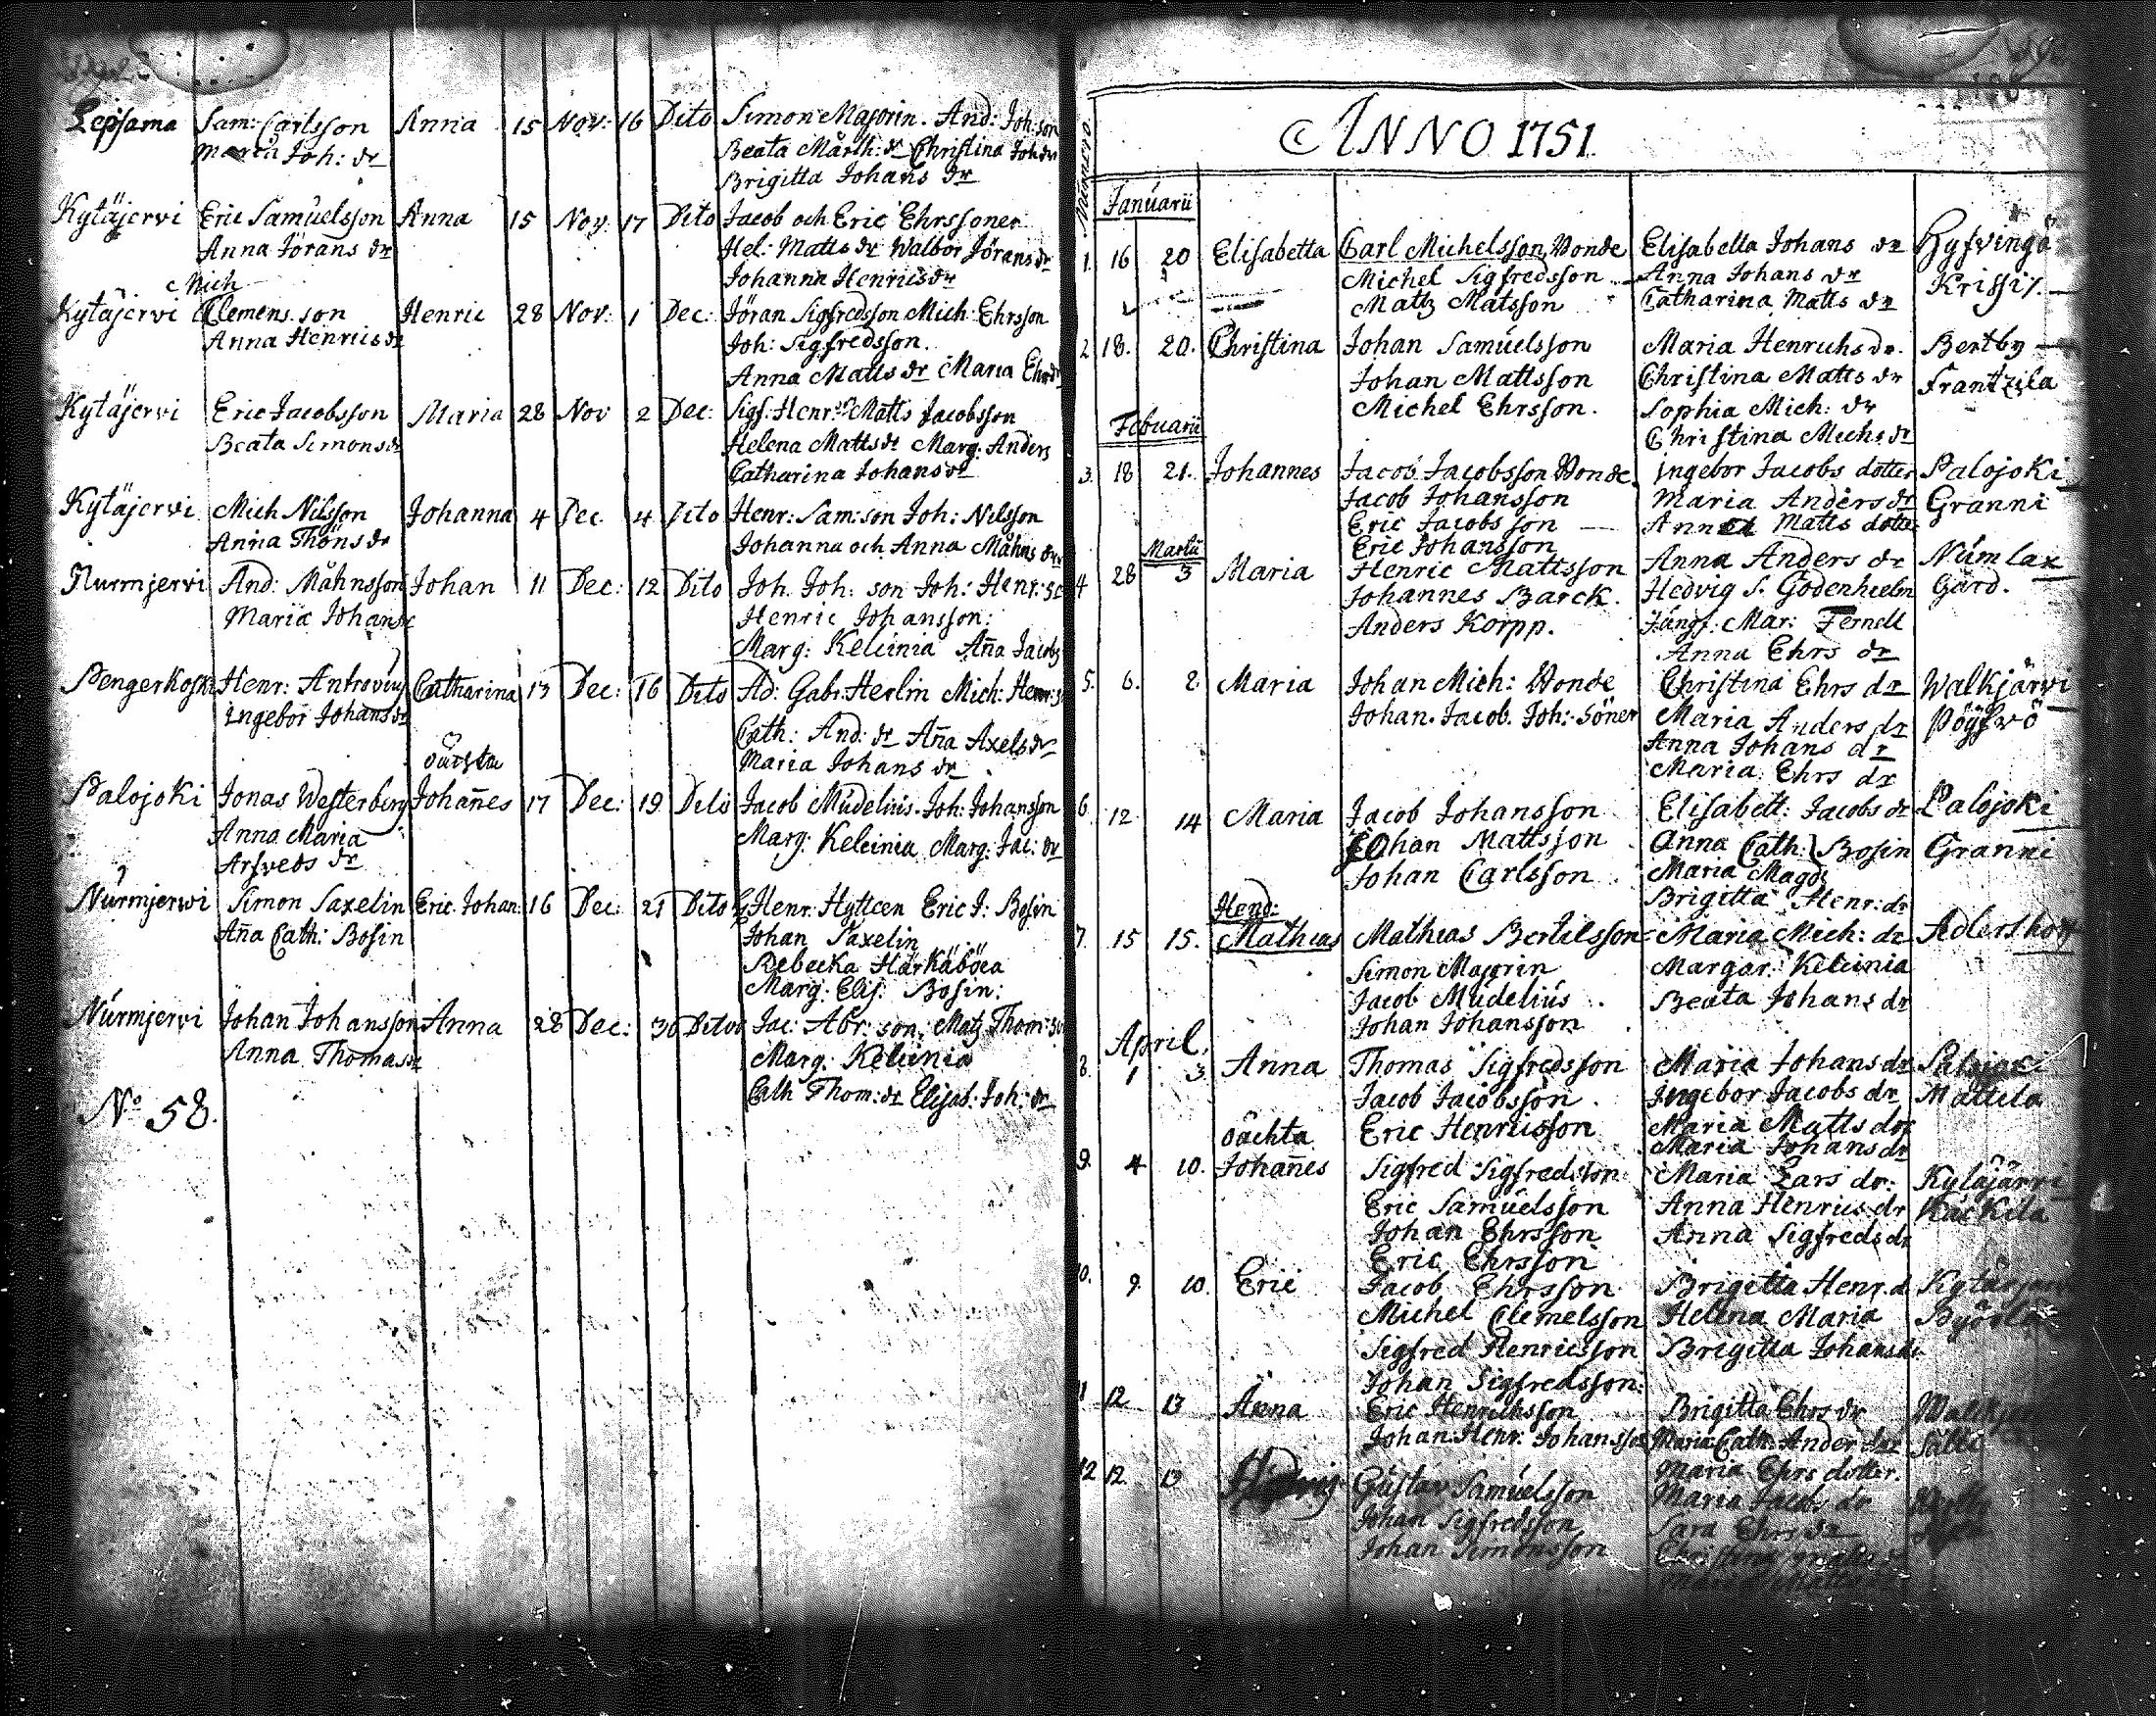 Lepsama Sam: Carlsson Anna 15 Nov: 16 Dito Simon Majorin. And: Joh:son
Maria Joh: dr Beata Mårth: dr Christina Joh dr
Brigitta Johans dr
Kytäjervi Eric Samúelsson Anna 15 Nov: 17 Dito Jacob och Eric Ehrssoner
Anna Jörans dr Hel: Matts dr Walbor Jörans dr
Johanna Henrics dr
Mich
Kytäjervi Clemens son Henric 28 Nov: 1 Dec: Jöran Sigfredsson Mich: Ehrsson
Anna Henrics dr Joh: Sigfredsson.
Anna Matts dr Maria Ehrs dr
Kytäjervi Eric Jacobsson Maria 28 Nov 2 Dec: Sigf: Henr: Matts Jacobsson
Beata Simons dr Helena Matts dr Marg: Anders
Catharina Johans dr
Kytäjervi Mich Nilsson Johanna 4 Dec 4 Dito Henr: Sam:son Joh: Nilsson
Anna Thöns dr Johanna och Anna Måhns dr
Nurmjervi And: Måhnsson Johan 11 Dec: 12 Dito Joh. Joh: son Joh: Henr: so
Maria Johans Henric Johansson:
Marg: Keleinia Aña Jacobs
Pengerkoski Henr: Antrovius Catharina 13 Dec: 16 Dito Ad: Gabr: Herlin Mich: Henr: s
Ingebor Johans dr Cath: And: dr Aña Axels dr
Maria Johans dr
oächta
Palojoki Jonas Westerberg Johañes 17 Dec: 19 Dito Jacob Múdeliús. Joh: Johansson
Anna Maria Marg: Keleinia Marg: Jac: dr
Arfveds dr
Núrmjerwi Simon Saxelin Eric Johan: 16 Dec: 21 Dito Henr: Hyttcen Eric J: Bosin
Aña Cath: Bosin Johan Saxelin
Rebecka Härkäböea
Marg: Elis: Bosin:
Núrmjervi Johan Johansson Anna 28 Dec: 30 Dito Jac: Abr: son, Matz Thom: so
Anna Thomas dr Marg: Keleinia
Cath Thom: dr Elisab: Joh: dr
No 58.
ANNO 1751
Número
Janúarii
1. 16 20 Elisabetta Carl Michelsson Wonde Elisabetta Johans dr Hyfvingä
Michel Sigfredsson Anna Johans dr Krissi
Matz Matsson Catharina Matts dr
2 18. 20. Christina Johan Samúelsson Maria Henrichs dr. Bertby
Johan Mattsson Christina Matts dr Frantzila
Michel Ehrsson. Sophia Mich: dr
Febuarii Christina Michs dr
3. 18 21. Johannes Jacob Jacobsson Wonde Ingebor Jacobs dotter Palojoki
Jacob Johansson Maria Anders dr Granni
Eric Jacobsson Anna Matts dotter
Martii Eric Johansson
4 28 3 Maria Henric Mattsson Anna Anders dr Númlax
Johannes Barck. Hedvig S. Godenhielm Gård.
Anders Korpp. Júngf: Mar: Fernell
Anna Ehrs dr
5. 6. 8 Maria Johan Mich: Wonde Christina Ehrs dr Walkjärvi
Johan. Jacob. Joh: Söner Maria Anders dr Pöysvö
Anna Johans dr
Maria Ehrs dr
6 12 14 Maria Jacob Johansson Elisabett: Jacobs dr Palojoki
Johan Mattsson Anna Cath: Bosin Granni
Johan Carlsson Maria Magd:
Hend: Brigitta Henr: dr
7. 15 15. Mathias Mathias Bertelsson Maria Mich: dr Adlershoff
Simon Majorin Margar: Keleinia
Jacob Múdeliús. Beata Johans dr
Johan Johansson
April.
8. 1 3. Anna Thomas Sigfredsson Maria Johans dr Palojoki
Jacob Jacobsson. Ingebor Jacobs dr Mattila
oächta Eric Henricsson Maria Matts dr
Maria Johans dr
9. 4 10. Johañes Sigfred Sigfredsson Maria Lars dr: Kytäjärvi
Eric Samúelsson Anna Henrics dr Kúckila
Johan Ehrsson Anna Sigfreds dr
Eric Ehrsson
10. 9. 10. Eric Jacob Ehrsson Brigitta Henr. d
Michel Clemelsson Helena Maria
Sigfred Henricsson Brigitta Johans dr
Johan Sigfredsson:
11 12 13 Anna Eric Henrichsson Brigitta Ehrs dr
Johan Henr: Johansson Maria Cath: Ander dr
Maria Ehrs dotter.
12 12. 13 Gústav Samúelsson Maria Jacobs dr
Johan Sigfredsson Sara Ehrs dr
Johan Simonsson Christina